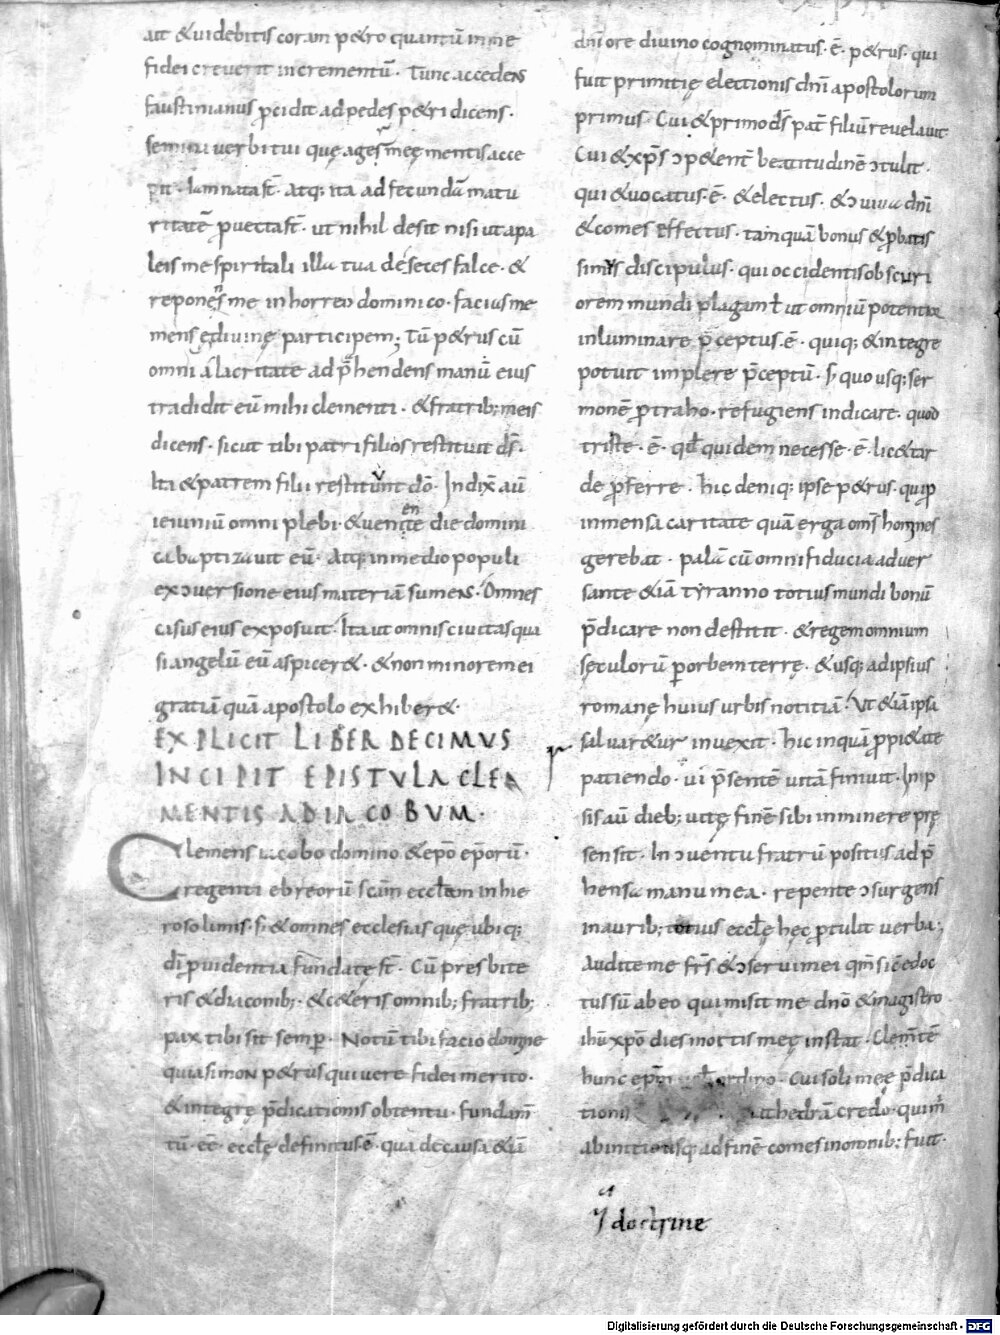 ait &uidebitis coram p&ro quantū in me
fidei creuerit incrementū. Tunc accedens
faustinianus ꝓcidit ad pedes p&ri dicens.
semina uerbi tui quę ager mee mentis acce
pit. Iam nata st̄. atq; ita ad fecundā matu
ritatē ꝓuecta st̄. ut nihil desit nisi ut apa
leis me spiritali illa tua deseces falce. &
repones me in horreo dominico. faciens me
mensę diuinę participem; Tū p&rus cū
omni alacritate adp̄hendens manū eius
tradidit eū mihi clementi. &fratrib; meis
dicens. sicut tibi patri filios restituit ds̄.
Ita &patrem filii restituunt dō. Indix̄ aū
ieiuniū omni plebi. &ueniente die domini
ca baptizauit eū. Atq; in medio populi
exↄuersione eius materiā sumens. Omnes
casus eius exposuit. Ita ut omnis ciuitas qua
si angelū eū aspicer&. &non minorem ei
gratiā quā apostolo exhiber&.
EXPLICIT LIBER DECIMVS
INCIPIT EPISTVLA CLE
MENTIS AD IACOBVM.
Clemens iacobo domino &ep̄o ep̄orū.
regenti ebreorū sc̄am eccl̄am in hie
rosolimis. s; &omnes ecclesias quę ubiq;
dī ꝓuidentia fundatę st̄. Cū presbite
ris &diaconib;. &c&eris omnib; fratrib;
pax tibi sit semꝑ. Notū tibi facio domine
quia simon p&rus qui uere fidei merito.
&integrę p̄dicationis obtentu. fundam̄
tū. eē. eccl̄ę definitus ē. qua de causa &iā
dn̄i ore diuino cognominatus. ē. p&rus. qui
fuit primitię electionis dn̄i apostolorum
primus. Cui &primo ds̄ pat̄ filiū reuelauit
Cui &xp̄s ↄp&ent̄ beatitudinē ↄtulit.
qui &uocatus. ē. &electus. &ↄuiua dn̄i
&comes effectus. tamquā bonus &ꝓbatis
simus discipulus. qui occidentis obscuri
orem mundi plagam ut omniū potentior
inluminare p̄ceptus. ē. quiq; &integre
potuit implere p̄ceptū. S; quousq; ser
monē ꝓtraho. refugiens indicare. quod
triste. ē. qd̄ quidem necesse. ē. lic&tar
de ꝓferre. hic deniq; ipse p&rus. qui ꝓ
inmensa caritate quā erga oms̄ homines
gerebat. palā cū omni fiducia aduer
sante &iā tyranno totius mundi bonū
p̄dicare non destitit. &regem omnium
sęculorū ꝑ orbem terrę. &usq; ad ipsius
romanę huius urbis notitiā. Ut &iā ipsa
saluar&ur inuexit. hic inquā ꝓ pi&ate
patiendo. ui p̄sentē uitā finiuit. In ip
sis aū dieb; uitę finē sibi inminere pre
sensit. In ↄuentu fratrū positus adp̄
hensa manu mea. repente ↄsurgens
in aurib; totius eccl̄ę hęc ꝓtulit uerba;
Audite me frs̄ &ↄserui mei qm̄ sic edoc
tus sū ab eo qui misit me dn̄o &magistro
ihū xpō dies mortis meę instat. Clem̄tē
hunc ep̄m ordino. Cui soli meę p̄dica
tionis cathedrā credo. qui m̄
ab initio usq; ad finē comes in omnib; fuit.
doctrine
Digitalisierung gefördert durch die Deutsche Forschungsgemeinschaft - DFG